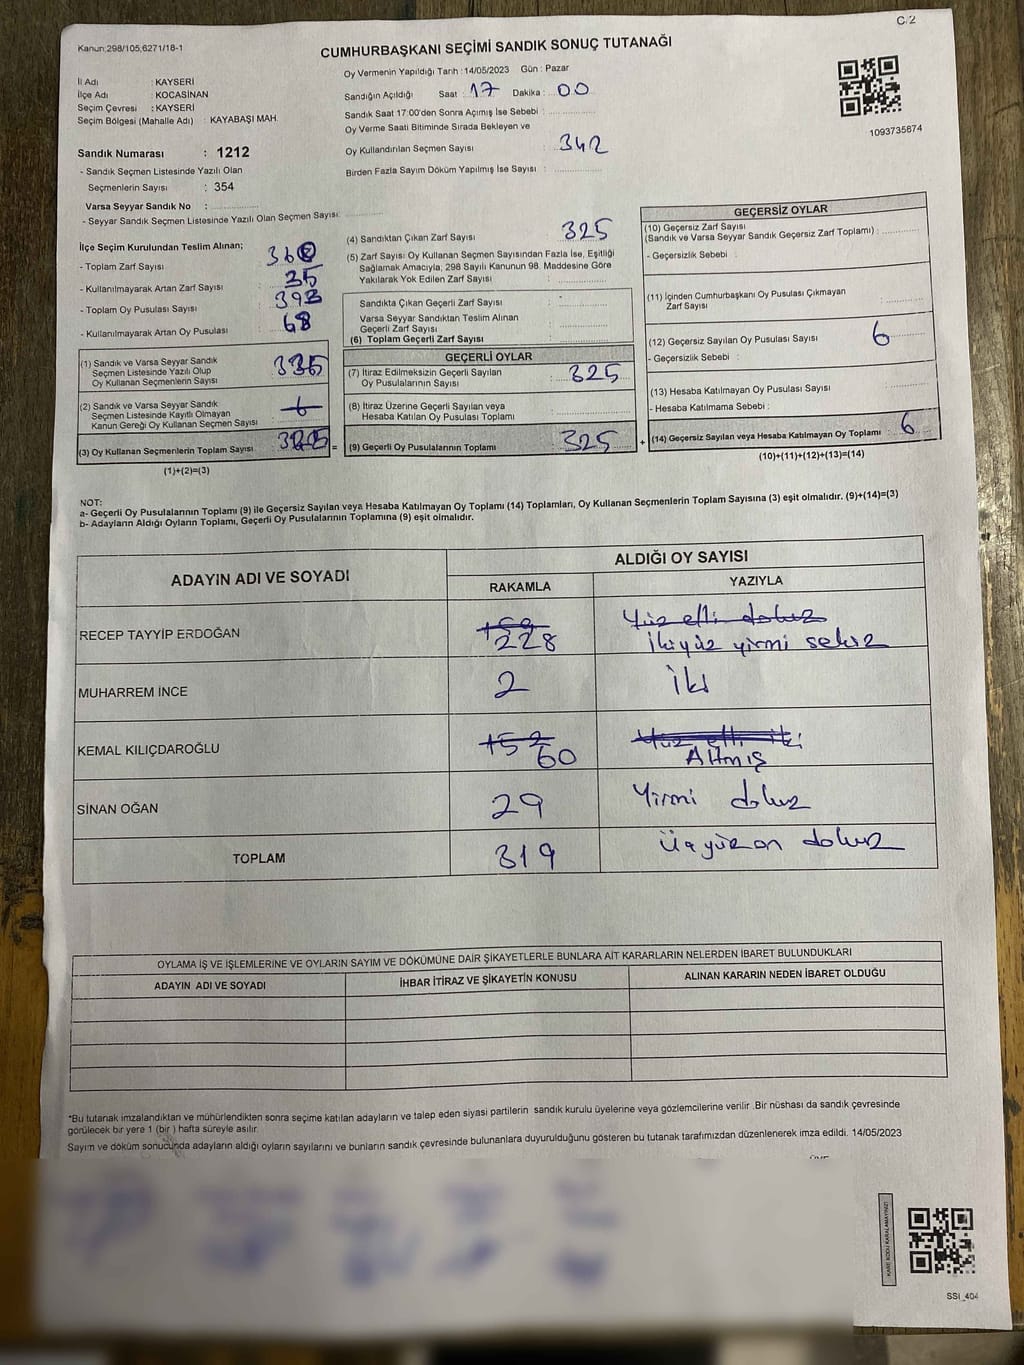 C/2
Kanun:298/105,6271/18-1
CUMHURBAŞKANI SEÇİMİ SANDIK SONUÇ TUTANAĞI
İl Adı : KAYSERİ
İlçe Adı : KOCASİNAN
Seçim Çevresi : KAYSERİ
Seçim Bölgesi (Mahalle Adı) : KAYABAŞI MAH.
Sandık Numarası : 1212
- Sandık Seçmen Listesinde Yazılı Olan
Seçmenlerin Sayısı : 354
Varsa Seyyar Sandık No :
- Seyyar Sandık Seçmen Listesinde Yazılı Olan Seçmen Sayısı:
Oy Vermenin Yapıldığı Tarih : 14/05/2023 Gün : Pazar
Sandığın Açıldığı Saat : 17 Dakika : 00
Sandık Saat 17:00'den Sonra Açımış İse Sebebi :
Oy Verme Saati Bitiminde Sırada Bekleyen ve
Oy Kullandırılan Seçmen Sayısı : 342
Birden Fazla Sayım Döküm Yapılmış İse Sayısı :
1093735874
İlçe Seçim Kurulundan Teslim Alınan;
- Toplam Zarf Sayısı :
- Kullanılmayarak Artan Zarf Sayısı : 35
- Toplam Oy Pusulası Sayısı :
- Kullanılmayarak Artan Oy Pusulası : 68
(1) Sandık ve Varsa Seyyar Sandık
Seçmen Listesinde Yazılı Olup
Oy Kullanan Seçmenlerin Sayısı
(2) Sandık ve Varsa Seyyar Sandık
Seçmen Listesinde Kayıtlı Olmayan
Kanun Gereği Oy Kullanan Seçmen Sayısı
(3) Oy Kullanan Seçmenlerin Toplam Sayısı
(1)+(2)=(3)
=
(4) Sandıktan Çıkan Zarf Sayısı : 325
(5) Zarf Sayısı Oy Kullanan Seçmen Sayısından Fazla İse, Eşitliği
Sağlamak Amacıyla; 298 Sayılı Kanunun 98. Maddesine Göre
Yakılarak Yok Edilen Zarf Sayısı :
Sandıkta Çıkan Geçerli Zarf Sayısı :
Varsa Seyyar Sandıktan Teslim Alınan
Geçerli Zarf Sayısı :
(6) Toplam Geçerli Zarf Sayısı :
GEÇERLİ OYLAR
(7) İtiraz Edilmeksizin Geçerli Sayılan
Oy Pusulalarının Sayısı : 325
(8) İtiraz Üzerine Geçerli Sayılan veya
Hesaba Katılan Oy Pusulası Toplamı :
(9) Geçerli Oy Pusulalarının Toplamı : 325
+
GEÇERSİZ OYLAR
(10) Geçersiz Zarf Sayısı
(Sandık ve Varsa Seyyar Sandık Geçersiz Zarf Toplamı) :
- Geçersizlik Sebebi :
(11) İçinden Cumhurbaşkanı Oy Pusulası Çıkmayan
Zarf Sayısı :
(12) Geçersiz Sayılan Oy Pusulası Sayısı : 6
- Geçersizlik Sebebi :
(13) Hesaba Katılmayan Oy Pusulası Sayısı :
- Hesaba Katılmama Sebebi :
(14) Geçersiz Sayılan veya Hesaba Katılmayan Oy Toplamı : 6
(10)+(11)+(12)+(13)=(14)
NOT:
a- Geçerli Oy Pusulalarının Toplamı (9) ile Geçersiz Sayılan veya Hesaba Katılmayan Oy Toplamı (14) Toplamları, Oy Kullanan Seçmenlerin Toplam Sayısına (3) eşit olmalıdır. (9)+(14)=(3)
b- Adayların Aldığı Oyların Toplamı, Geçerli Oy Pusulalarının Toplamına (9) eşit olmalıdır.
ADAYIN ADI VE SOYADI
ALDIĞI OY SAYISI
RAKAMLA YAZIYLA
Yüz elli dokuz
RECEP TAYYİP ERDOĞAN 228 İkiyüz yirmi sekiz
MUHARREM İNCE 2 İki
152 Yüz elli iki
KEMAL KILIÇDAROĞLU 60 Altmış
SİNAN OĞAN 29 Yirmi dokuz
TOPLAM 319 Üçyüz on dokuz
OYLAMA İŞ VE İŞLEMLERİNE VE OYLARIN SAYIM VE DÖKÜMÜNE DAİR ŞİKAYETLERLE BUNLARA AİT KARARLARIN NELERDEN İBARET BULUNDUKLARI
ADAYIN ADI VE SOYADI İHBAR İTİRAZ VE ŞİKAYETİN KONUSU ALINAN KARARIN NEDEN İBARET OLDUĞU
*Bu tutanak imzalandıktan ve mühürlendikten sonra seçime katılan adayların ve talep eden siyasi partilerin sandık kurulu üyelerine veya gözlemcilerine verilir .Bir nüshası da sandık çevresinde
görülecek bir yere 1 (bir ) hafta süreyle asılır.
Sayım ve döküm sonucunda adayların aldığı oyların sayılarını ve bunların sandık çevresinde bulunanlara duyurulduğunu gösteren bu tutanak tarafımızdan düzenlenerek imza edildi. 14/05/2023
KARE KODU KARALAMAYINIZ!
SSİ_404